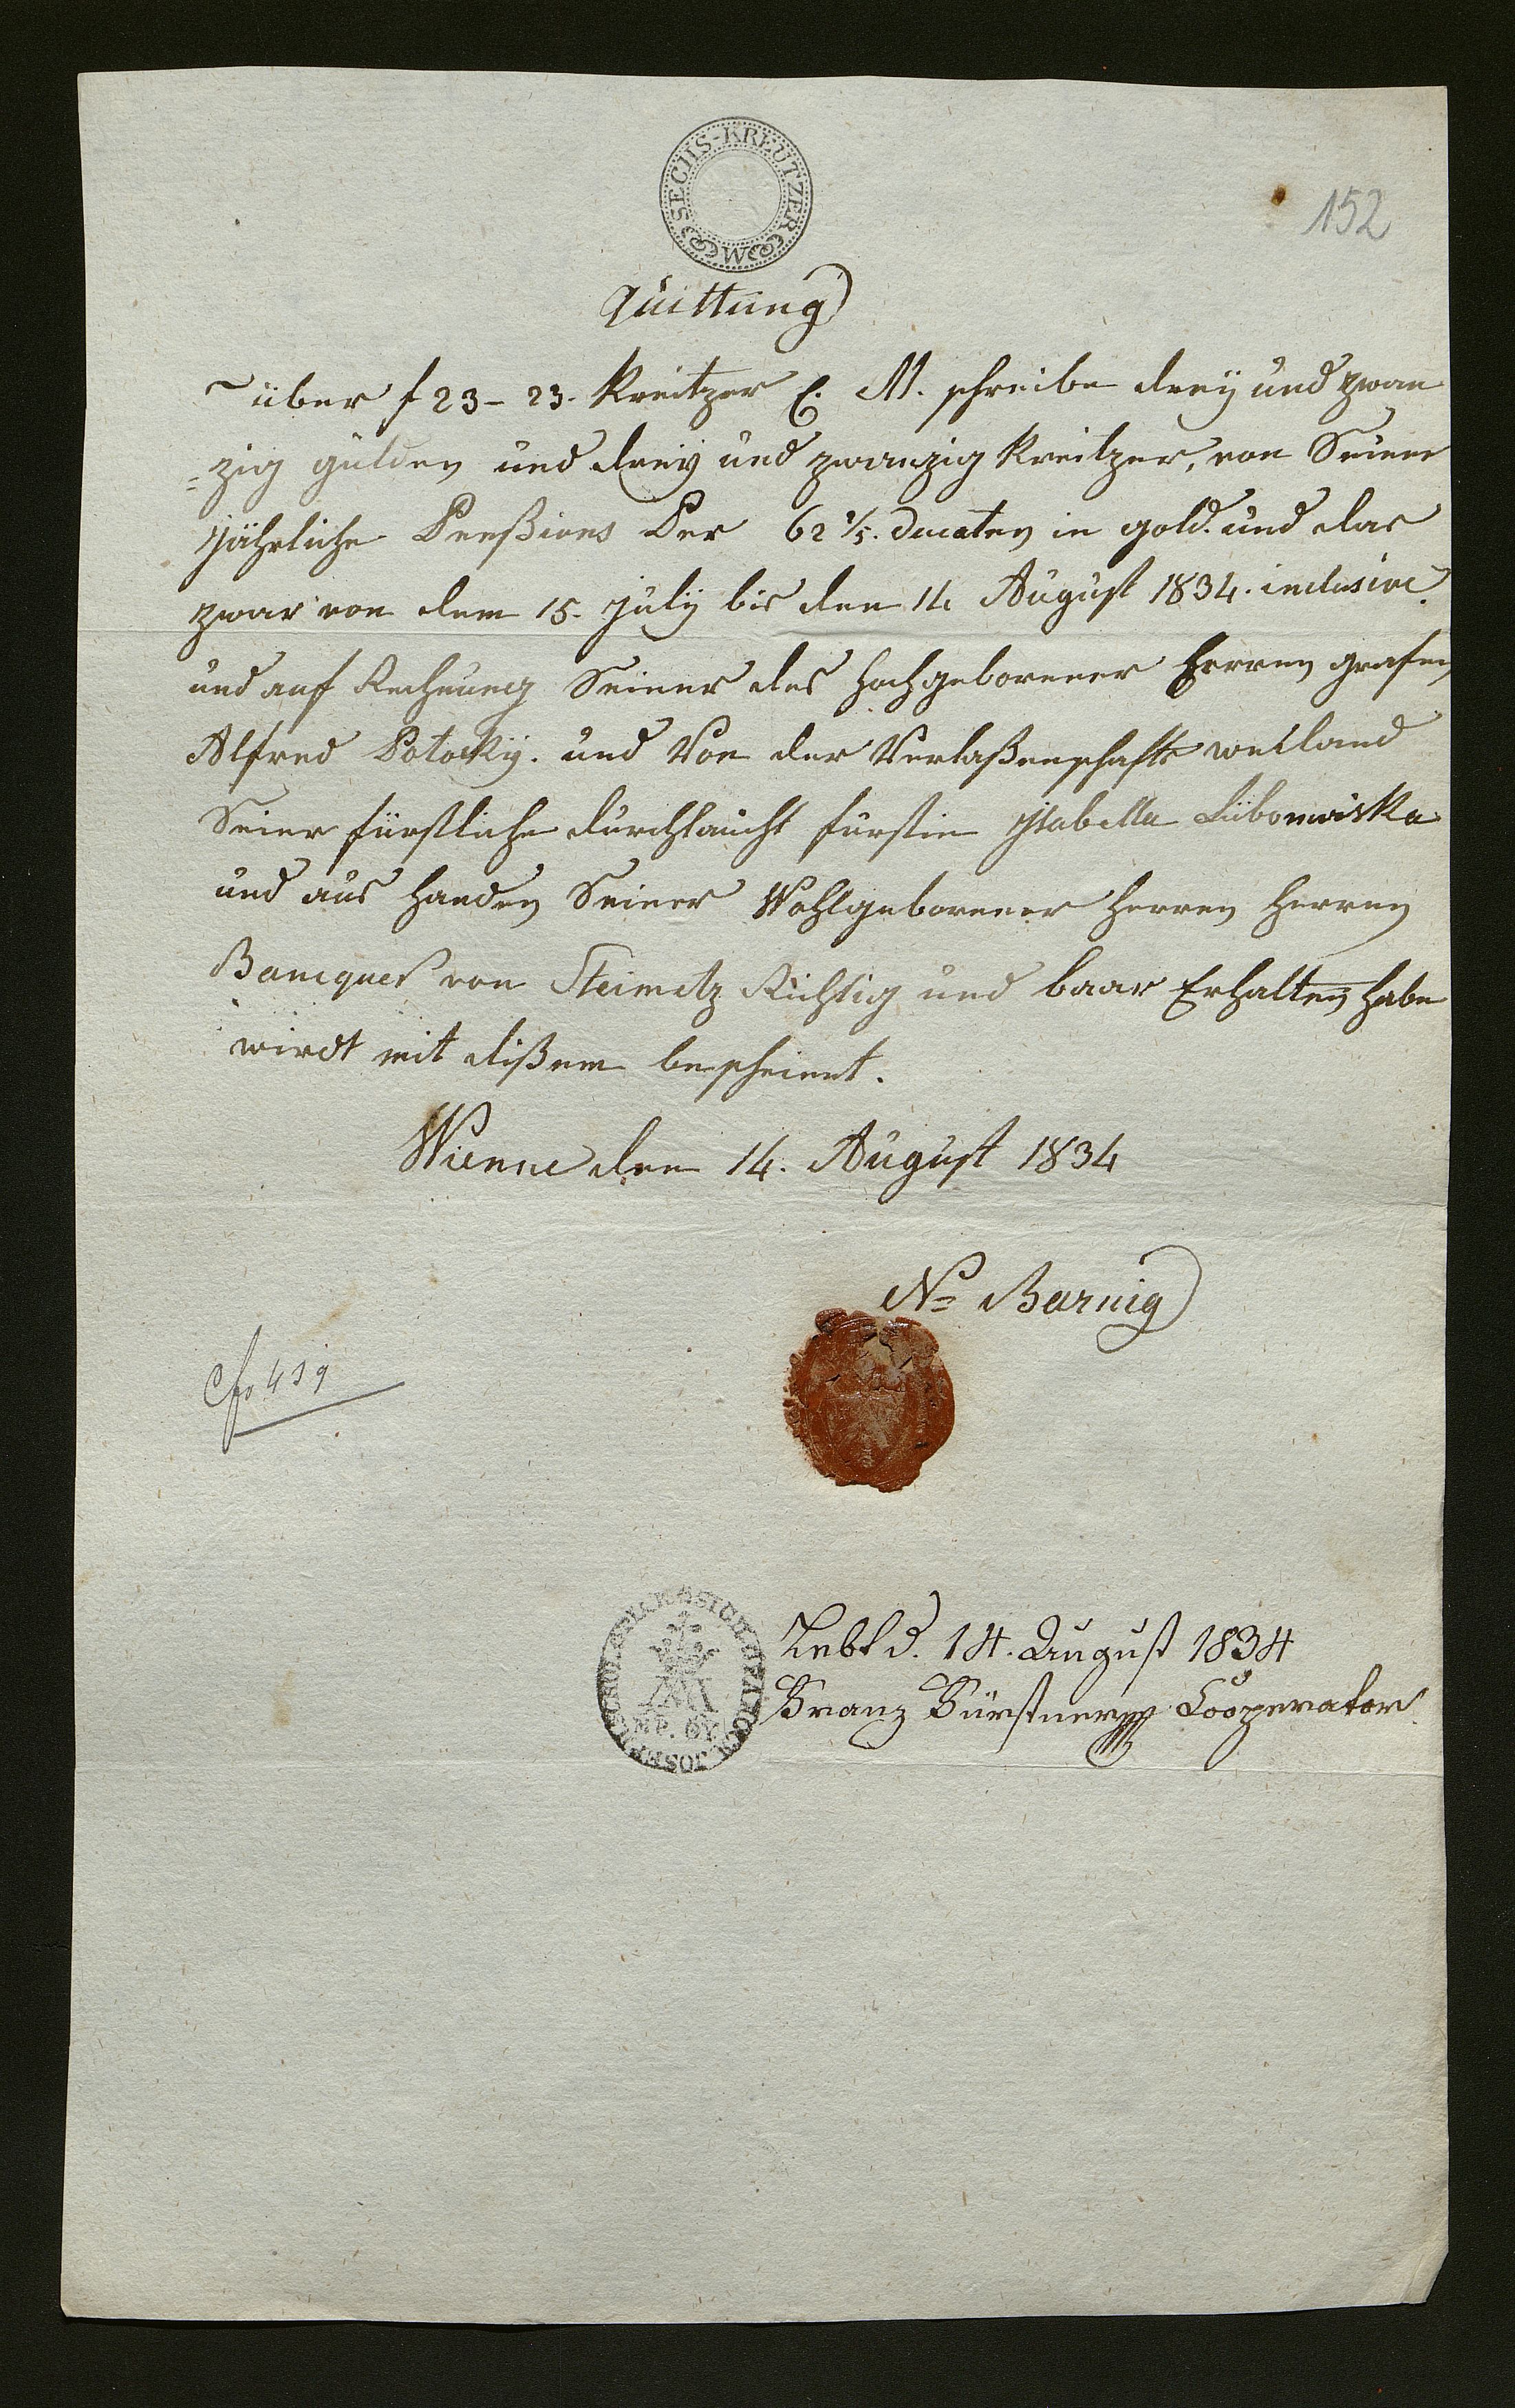 SECHS-KREUTZER
WM
152
Quittung
über f 23 - 23. Kreitzer C. M. schreibe dreÿ und zwan
=zig gulden und dreÿ und zwanzig Kreitzer, von Seiner
jährliche Penßions Per 62 1/5. Ducaten in gold. und das
zwar von dem 15. Julÿ bis den 14 August 1834. inclusive.
und auf Rechnung Seiner des hochgeborener Herren grafen
Alfred Potockÿ. und Von der Verlaßenschafts weiland
Seier fürstliche durchlaucht fürstin Isabella Lubomirska
und aus handen Seiner Wohlgeborener Herren Herren
Banquer von Steimetz Richtig und baar Erhalten habe
wirdt mit dißem bescheint.
Wienne den 14. August 1834
N= Barnig
439
Lebt d. 14. August 1834
Franz Fürstner Cooperator